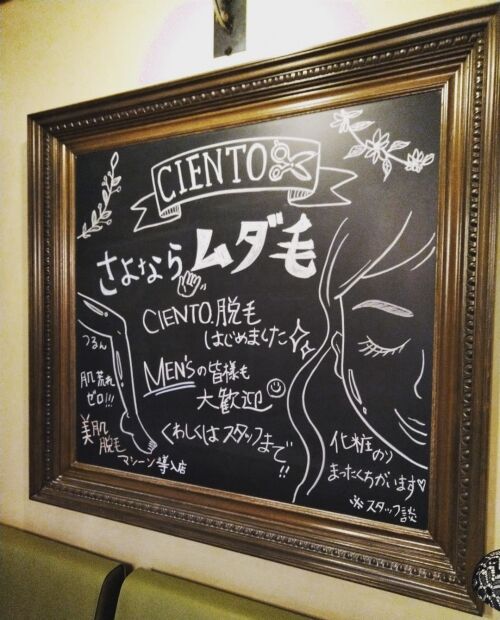 CIENTO
さよなら ムダ毛
CIENTO.脱毛
はじめました
MEN'Sの皆様も
大歓迎
くわしくはスタッフまで!!
つるん
肌荒れ
ゼロ!!!
美肌
脱毛
マシーン導入店
化粧のり
まったくちがいます♡
※スタッフ談